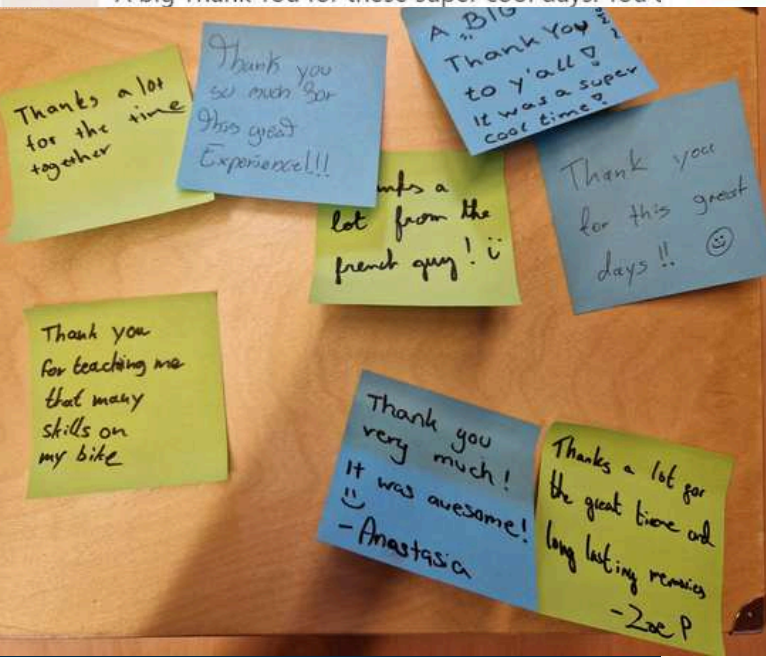 Thanks a lot
for the time
together
Thank you
so much for
this great
Experience!!!
A „BIG"
Thank You
to y'all!
It was a super
cool time!
a
lot from the
french guy! ü
Thank you
for this great
days!! ☺
Thank you
for teaching me
that many
skills on
my bike
Thank you
very much!
It was awesome!
ü
- Anastasia
Thanks a lot for
the great time and
long lasting
- Zoe P